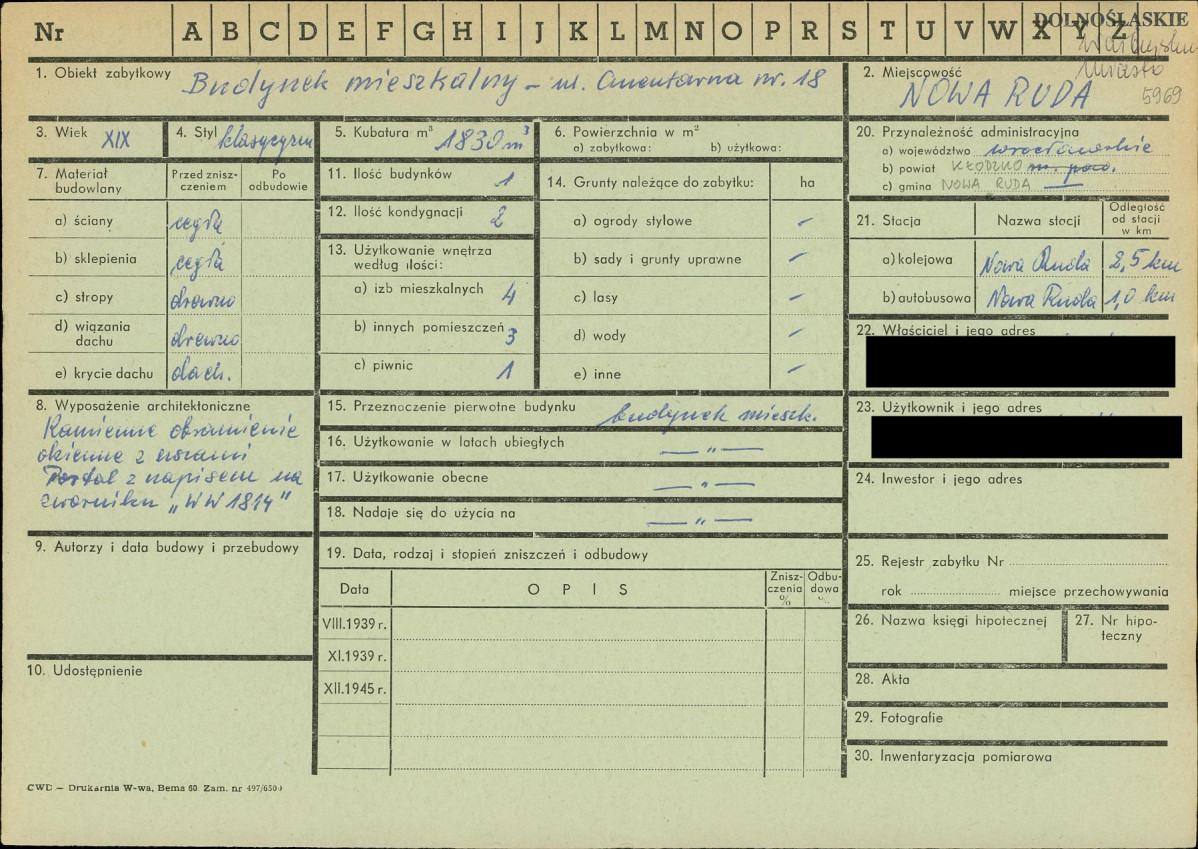 Nr A B C D E F G H I J K L M N O P R S T U V W X Y Z
DOLNOŚLĄSKIE
Miasto
5969
1. Obiekt zabytkowy Budynek mieszkalny – ul. Cmentarna nr. 18
2. Miejscowość
NOWA RUDA
3. Wiek XIX
4. Styl klasycyzm
5. Kubatura m³ 1830 m³
6. Powierzchnia w m²
a) zabytkowa: b) użytkowa:
7. Materiał budowlany
Przed zniszczeniem
Po odbudowie
a) ściany cegła
b) sklepienia cegła
c) stropy drewno
d) wiązania dachu drewno
e) krycie dachu dach.
8. Wyposażenie architektoniczne
Kamienne obramienie
okienne z uszami
Portal z napisem na
zworniku „WW 1814"
9. Autorzy i data budowy i przebudowy
10. Udostępnienie
11. Ilość budynków 1
12. Ilość kondygnacji 2
13. Użytkowanie wnętrza
według ilości:
a) izb mieszkalnych 4
b) innych pomieszczeń 3
c) piwnic 1
14. Grunty należące do zabytku: ha
a) ogrody stylowe –
b) sady i grunty uprawne –
c) lasy –
d) wody –
e) inne –
15. Przeznaczenie pierwotne budynku budynek mieszk.
16. Użytkowanie w latach ubiegłych — „ —
17. Użytkowanie obecne — „ —
18. Nadaje się do użycia na — „ —
19. Data, rodzaj i stopień zniszczeń i odbudowy
Data OPIS Zniszczenia % Odbudowa %
VIII.1939 r.
XI.1939 r.
XII.1945 r.
20. Przynależność administracyjna
a) województwo wrocławskie
b) powiat KŁODZKO m. pow.
c) gmina NOWA RUDA —
21. Stacja Nazwa stacji Odległość od stacji w km
a) kolejowa Nowa Ruda 2,5 km
b) autobusowa Nowa Ruda 1,0 km
22. Właściciel i jego adres
23. Użytkownik i jego adres
24. Inwestor i jego adres
25. Rejestr zabytku Nr
rok miejsce przechowywania
26. Nazwa księgi hipotecznej
27. Nr hipoteczny
28. Akta
29. Fotografie
30. Inwentaryzacja pomiarowa
CWD — Drukarnia W-wa, Bema 60. Zam. nr 497/6500